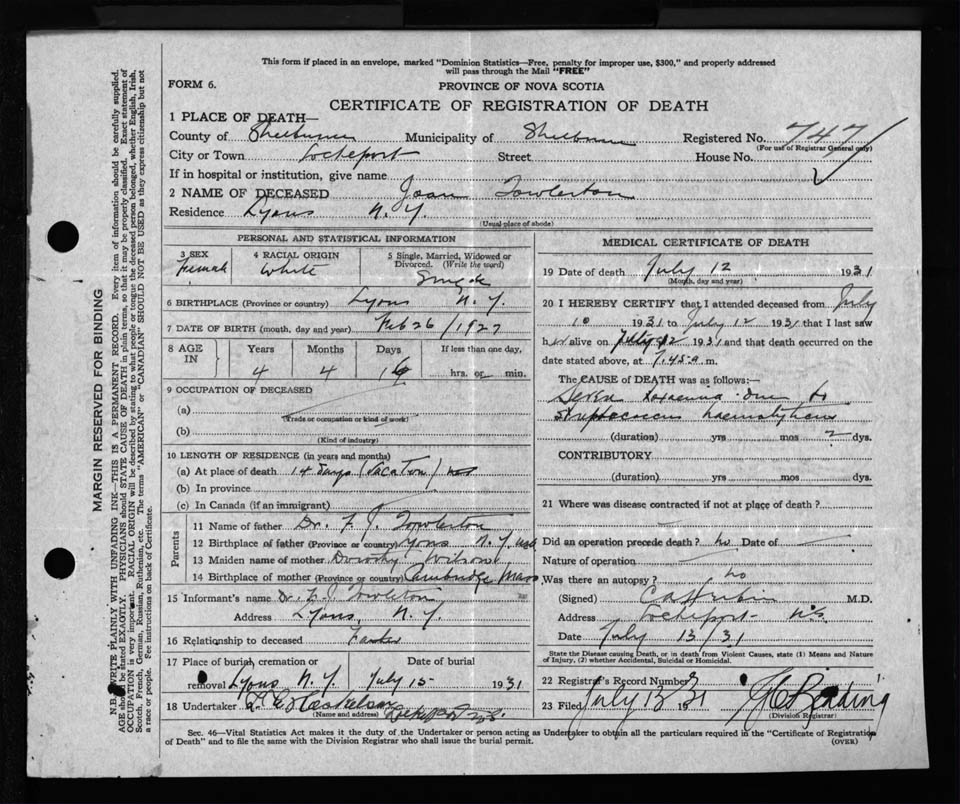 This form if placed in an envelope, marked "Dominion Statistics—Free, penalty for improper use, $300," and properly addressed
will pass through the Mail "FREE"
FORM 6.
PROVINCE OF NOVA SCOTIA
CERTIFICATE OF REGISTRATION OF DEATH
1 PLACE OF DEATH—
County of Shelburne Municipality of Shelburne Registered No. 747
(For use of Registrar General only)
City or Town Lockeport Street House No.
If in hospital or institution, give name
2 NAME OF DECEASED Joan Towlerton
Residence Lyons N.Y.
(Usual place of abode)
PERSONAL AND STATISTICAL INFORMATION
3 SEX
Female
4 RACIAL ORIGIN
White
5 Single, Married, Widowed or
Divorced. (Write the word)
Single
6 BIRTHPLACE (Province or country) Lyons N.Y.
7 DATE OF BIRTH (month, day and year) Feb 26/1927
8 AGE
IN
Years
4
Months
4
Days
16
If less than one day,
hrs. or min.
9 OCCUPATION OF DECEASED
(a)
(Trade or occupation or kind of work)
(b)
(Kind of industry)
10 LENGTH OF RESIDENCE (in years and months)
(a) At place of death 14 days (vacation)
(b) In province
(c) In Canada (if an immigrant)
Parents
11 Name of father Dr. F. J. Towlerton
12 Birthplace of father (Province or country) Lyons N.Y. USA
13 Maiden name of mother Dorothy Wilson
14 Birthplace of mother (Province or country) Cambridge Mass
15 Informant's name Dr. F. J. Towlerton
Address Lyons, N.Y.
16 Relationship to deceased Father
17 Place of burial, cremation or Date of burial
removal Lyons N.Y. July 15 1931
18 Undertaker
(Name and address) Lockeport N.S.
MEDICAL CERTIFICATE OF DEATH
19 Date of death July 12 1931
(Month, day and year)
20 I HEREBY CERTIFY that I attended deceased from July
10 1931 to July 12 1931 that I last saw
her alive on July 12 1931 and that death occurred on the
date stated above, at 7.45 a m.
The CAUSE OF DEATH was as follows:—
Severe toxaemia due to
Streptococcus haemolyticus
(duration) yrs mos 2 dys.
CONTRIBUTORY
(duration) yrs mos dys.
21 Where was disease contracted if not at place of death?
Did an operation precede death? no Date of
Nature of operation
Was there an autopsy? no
(Signed) M.D.
Address Lockeport N.S.
Date July 13/31
State the Disease causing Death, or in death from Violent Causes, state (1) Means and Nature
of Injury, (2) whether Accidental, Suicidal or Homicidal.
22 Registrar's Record Number
23 Filed July 13 1931
(Division Registrar)
Sec. 46—Vital Statistics Act makes it the duty of the Undertaker or person acting as Undertaker to obtain all the particulars required in the "Certificate of Registration
of Death" and to file the same with the Division Registrar who shall issue the burial permit.
(OVER)
MARGIN RESERVED FOR BINDING
N.B.—WRITE PLAINLY WITH UNFADING INK—THIS IS A PERMANENT RECORD. Every item of information should be carefully supplied.
AGE should be stated EXACTLY. PHYSICIANS should STATE CAUSE OF DEATH in plain terms, so that it may be properly classified. Exact statement of
OCCUPATION is very important. RACIAL ORIGIN will be described by stating to what people or tongue the deceased person belonged, whether English, Irish,
Scotch, French, German, Russian, Ruthenian, etc. The terms "AMERICAN" or "CANADIAN" SHOULD NOT BE USED as they express citizenship but not
a race or people. Fee instructions on back of Certificate.